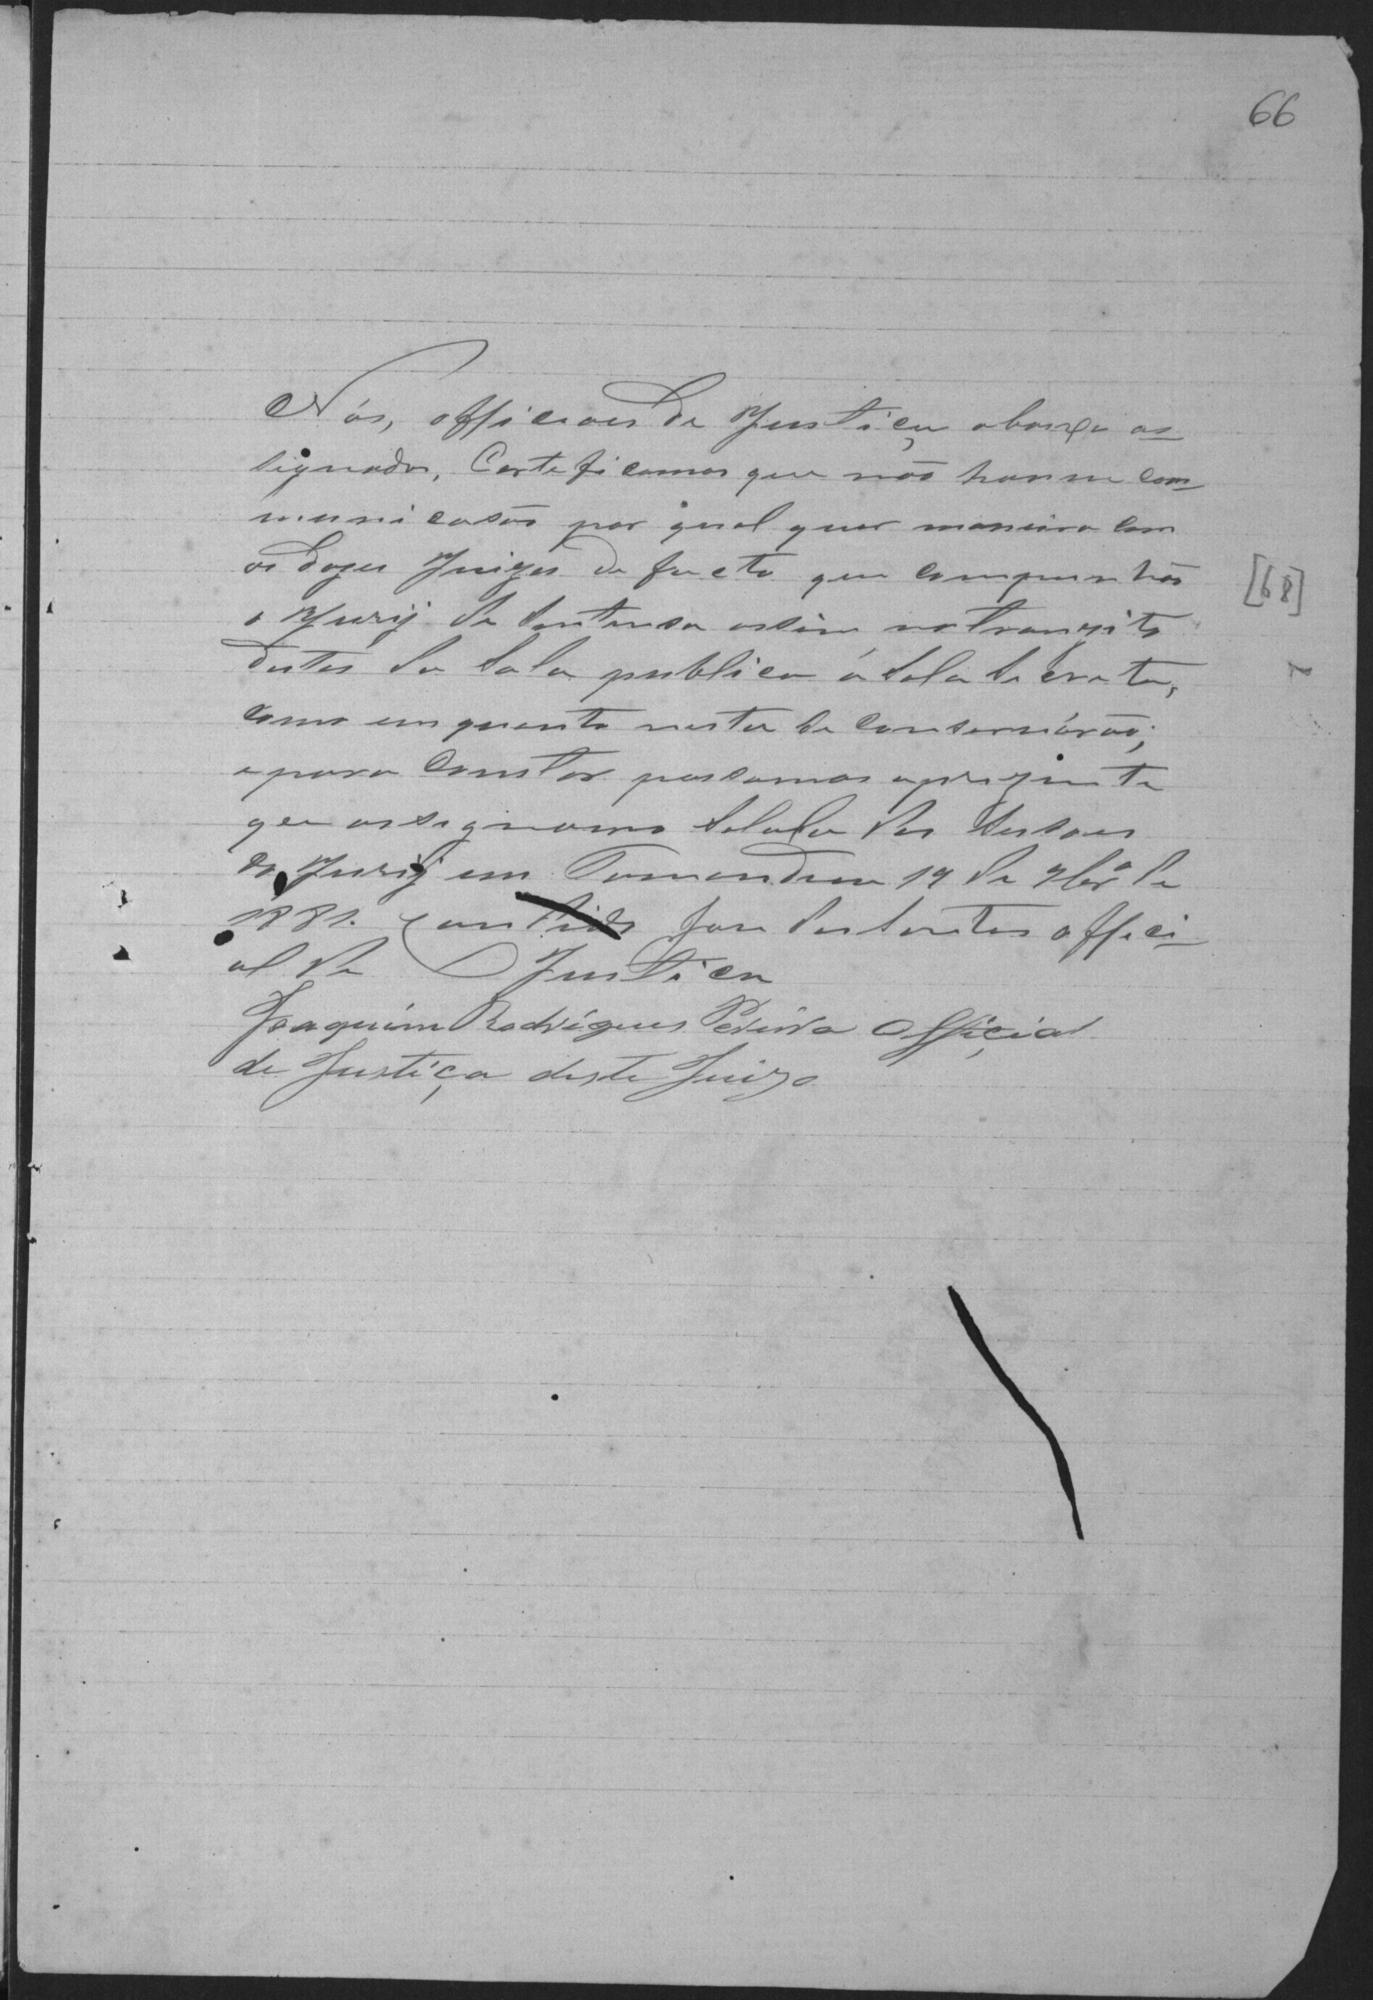 66
Nós, officiaes de Justiça abaixo as
signados, Certeficamos que não houve com
municasão por qual quer maneira com
os doze Juizes de facto que compunhão
o Jury de Sentensa assim no tranzito
destes da Sala publica á Sala Secreta,
como em quanto nesta se conservárão;
e para Constar passamos a prezente
que assignamos Sala das Sessoes
do Jury em Tamanduá 19 de 9bro de
1881. official
al de Justica
[68]
Joaquim Rodrigues Pereira Official
de Justiça deste Juizo